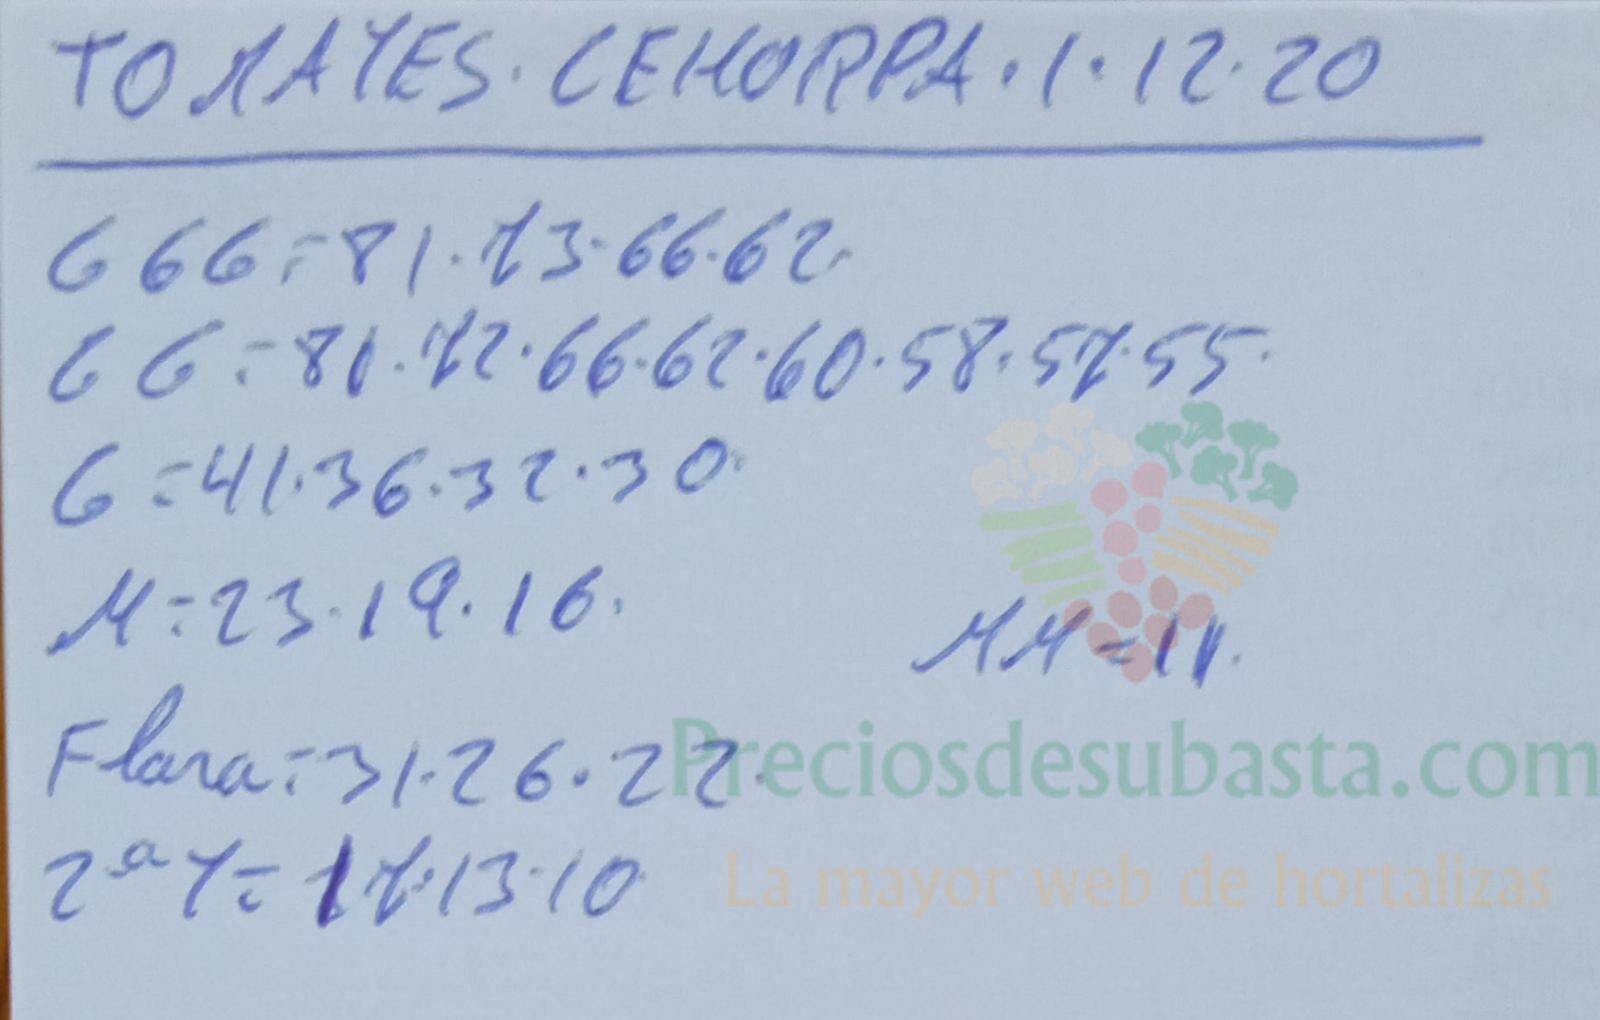 TOMATES. CEHORPA. 1. 12. 20
GGG = 81. 73. 66. 62.
GG = 81. 72. 66. 62. 60. 58. 57. 55.
G = 41. 36. 32. 30.
M = 23. 19. 16.
MM = 11.
Flora = 31. 26. 22.
2ª Y = 17. 13. 10
Preciosdesubasta.com
La mayor web de hortalizas